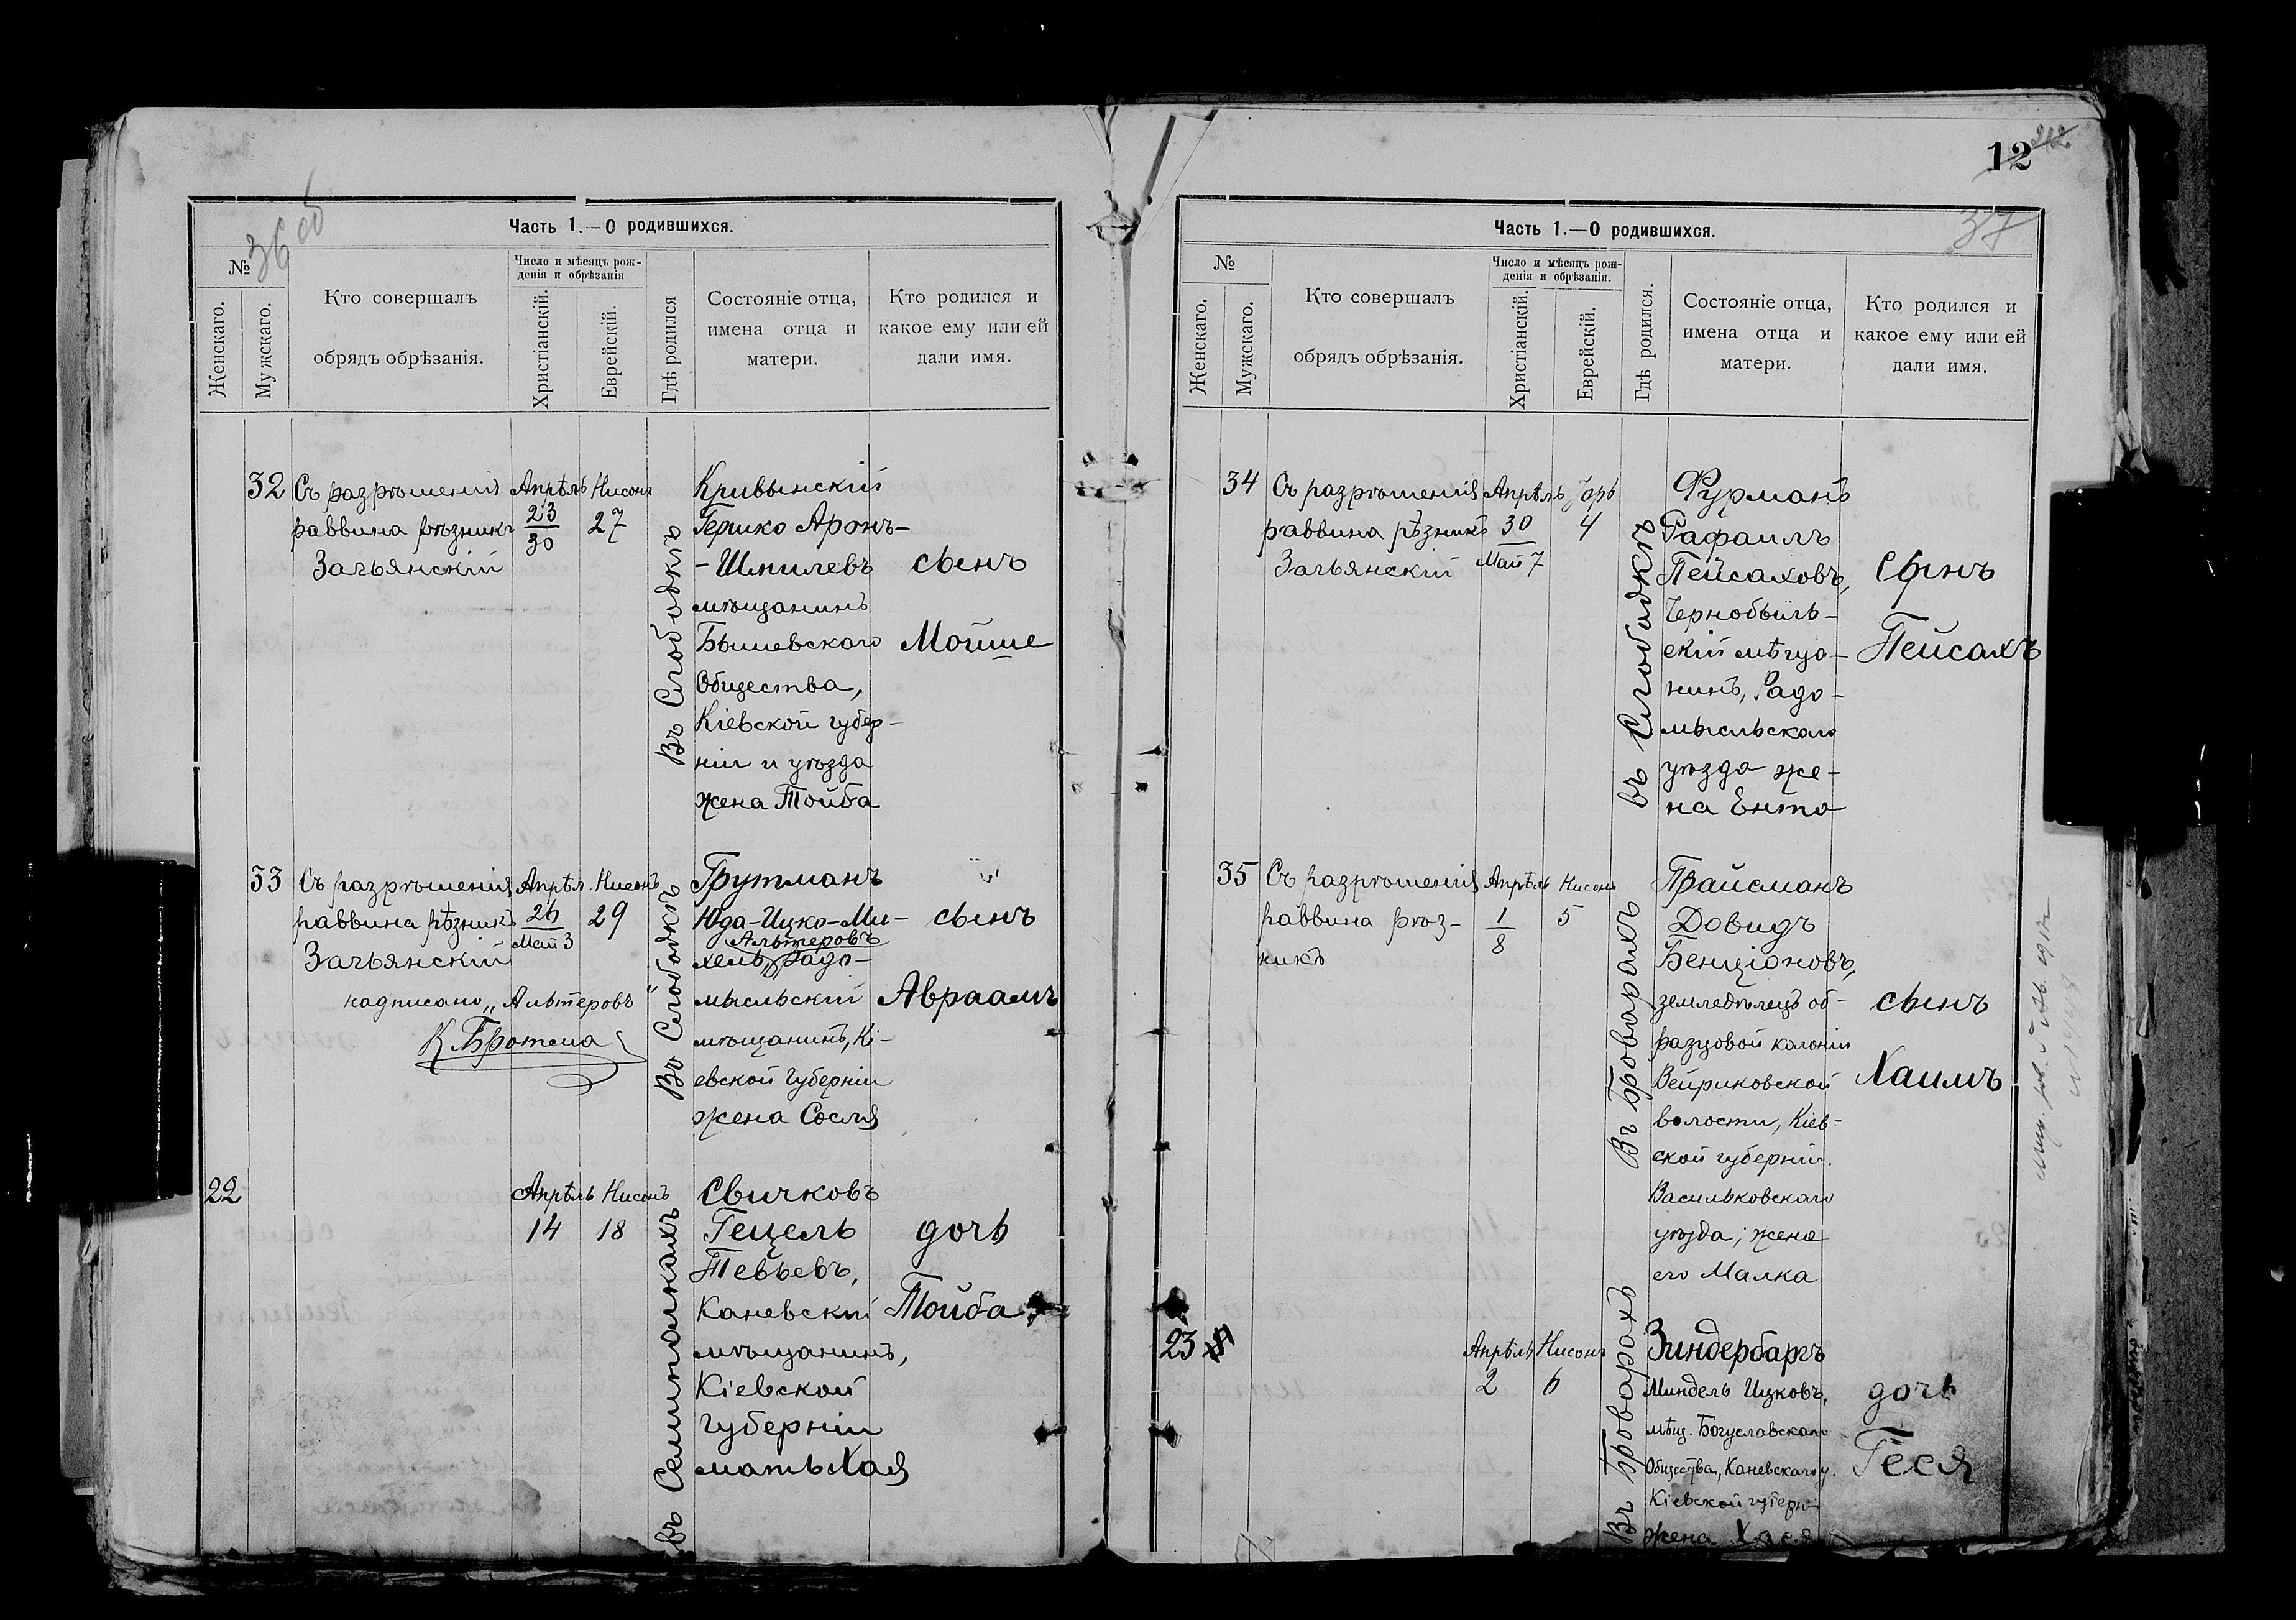 36 об
Часть 1.—О родившихся.
№
Женскаго.
Мужскаго.
Кто совершалъ
обрядъ обрѣзанія.
Число и мѣсяцъ рож-
денія и обрѣзанія
Христіанскій.
Еврейскій.
Гдѣ родился
Состояніе отца,
имена отца и
матери.
Кто родился и
какое ему или ей
дали имя.
32
Съ разрѣшенія
раввина рѣзникъ
Зачьянскій
Апрѣль
23
30
Нисонъ
27
Въ Слободкѣ
Кривынскій
Гершко Аронъ-
- Шмилевъ
мѣщанинъ
Бышевскаго
Общества,
Кіевской губер-
ніи и уѣзда
жена Тойба
сынъ
Мойше
33
Съ разрѣшенія
раввина рѣзникъ
Зачьянскій
Апрѣл.
26
Май 3
Нисонъ
29
надписано „Альтеровъ"
Въ Слободкѣ
Грутманъ
Юда-Ицко-Ми-
Альтеровъ
хель, Радо-
мысльскій
мѣщанинъ, Кі-
евской губерніи
жена Сося
сынъ
Авраамъ
22
Апрѣль
14
Нисонъ
18
въ Семиполкахъ
Свичковъ
Гецель
Тевьевъ,
Каневскій
мѣщанинъ,
Кіевской
губерніи
мать Хая
дочь
Тойба
12
37
Часть 1.—О родившихся.
№
Женскаго.
Мужскаго.
Кто совершалъ
обрядъ обрѣзанія.
Число и мѣсяцъ рож-
денія и обрѣзанія.
Христіанскій.
Еврейскій.
Гдѣ родился.
Состояніе отца,
имена отца и
матери.
Кто родился и
какое ему или ей
дали имя.
34
Съ разрѣшенія
раввина рѣзникъ
Зачьянскій
Апрѣль
30
Май 7
4
въ Слободкѣ
Фурманъ
Рафаилъ
Пейсаховъ,
Чернобыль-
скій мѣща-
нинъ, Радо-
мысльскаго
уѣзда же-
на Ента
сынъ
Пейсахъ
35
Съ разрѣшенія
раввина рѣз-
никъ
Апрѣль
1
8
Нисонъ
5
Въ Броварахъ
Прайсманъ
Довидъ
Бенціоновъ,
земледѣлецъ об-
разцовой колоніи
Вейриковской
волости, Кіев-
ской губерніи.
Васильковскаго
уѣзда; жена
его Малка
сынъ
Хаимъ
23
Апрѣль
2
Нисонъ
6
Въ Броварахъ
Зиндербаргъ
Миндель Ицковъ,
мѣщ. Богуславскаго
Общества, Каневскаго у.
Кіевской губерн.
жена Хася
дочь
Геся